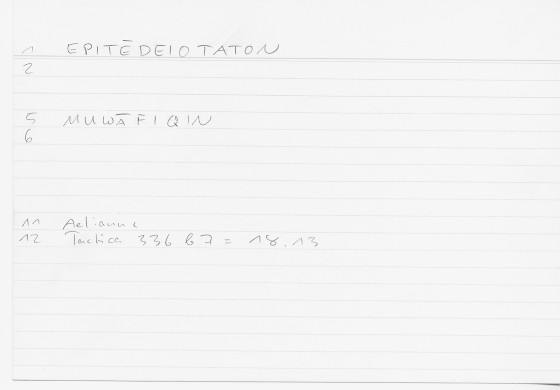 1 EPITĒDEIOTATON
2
5 MUWĀFIQIN
6
11 Aelianus
12 Tactica 336 b 7 = 18.13